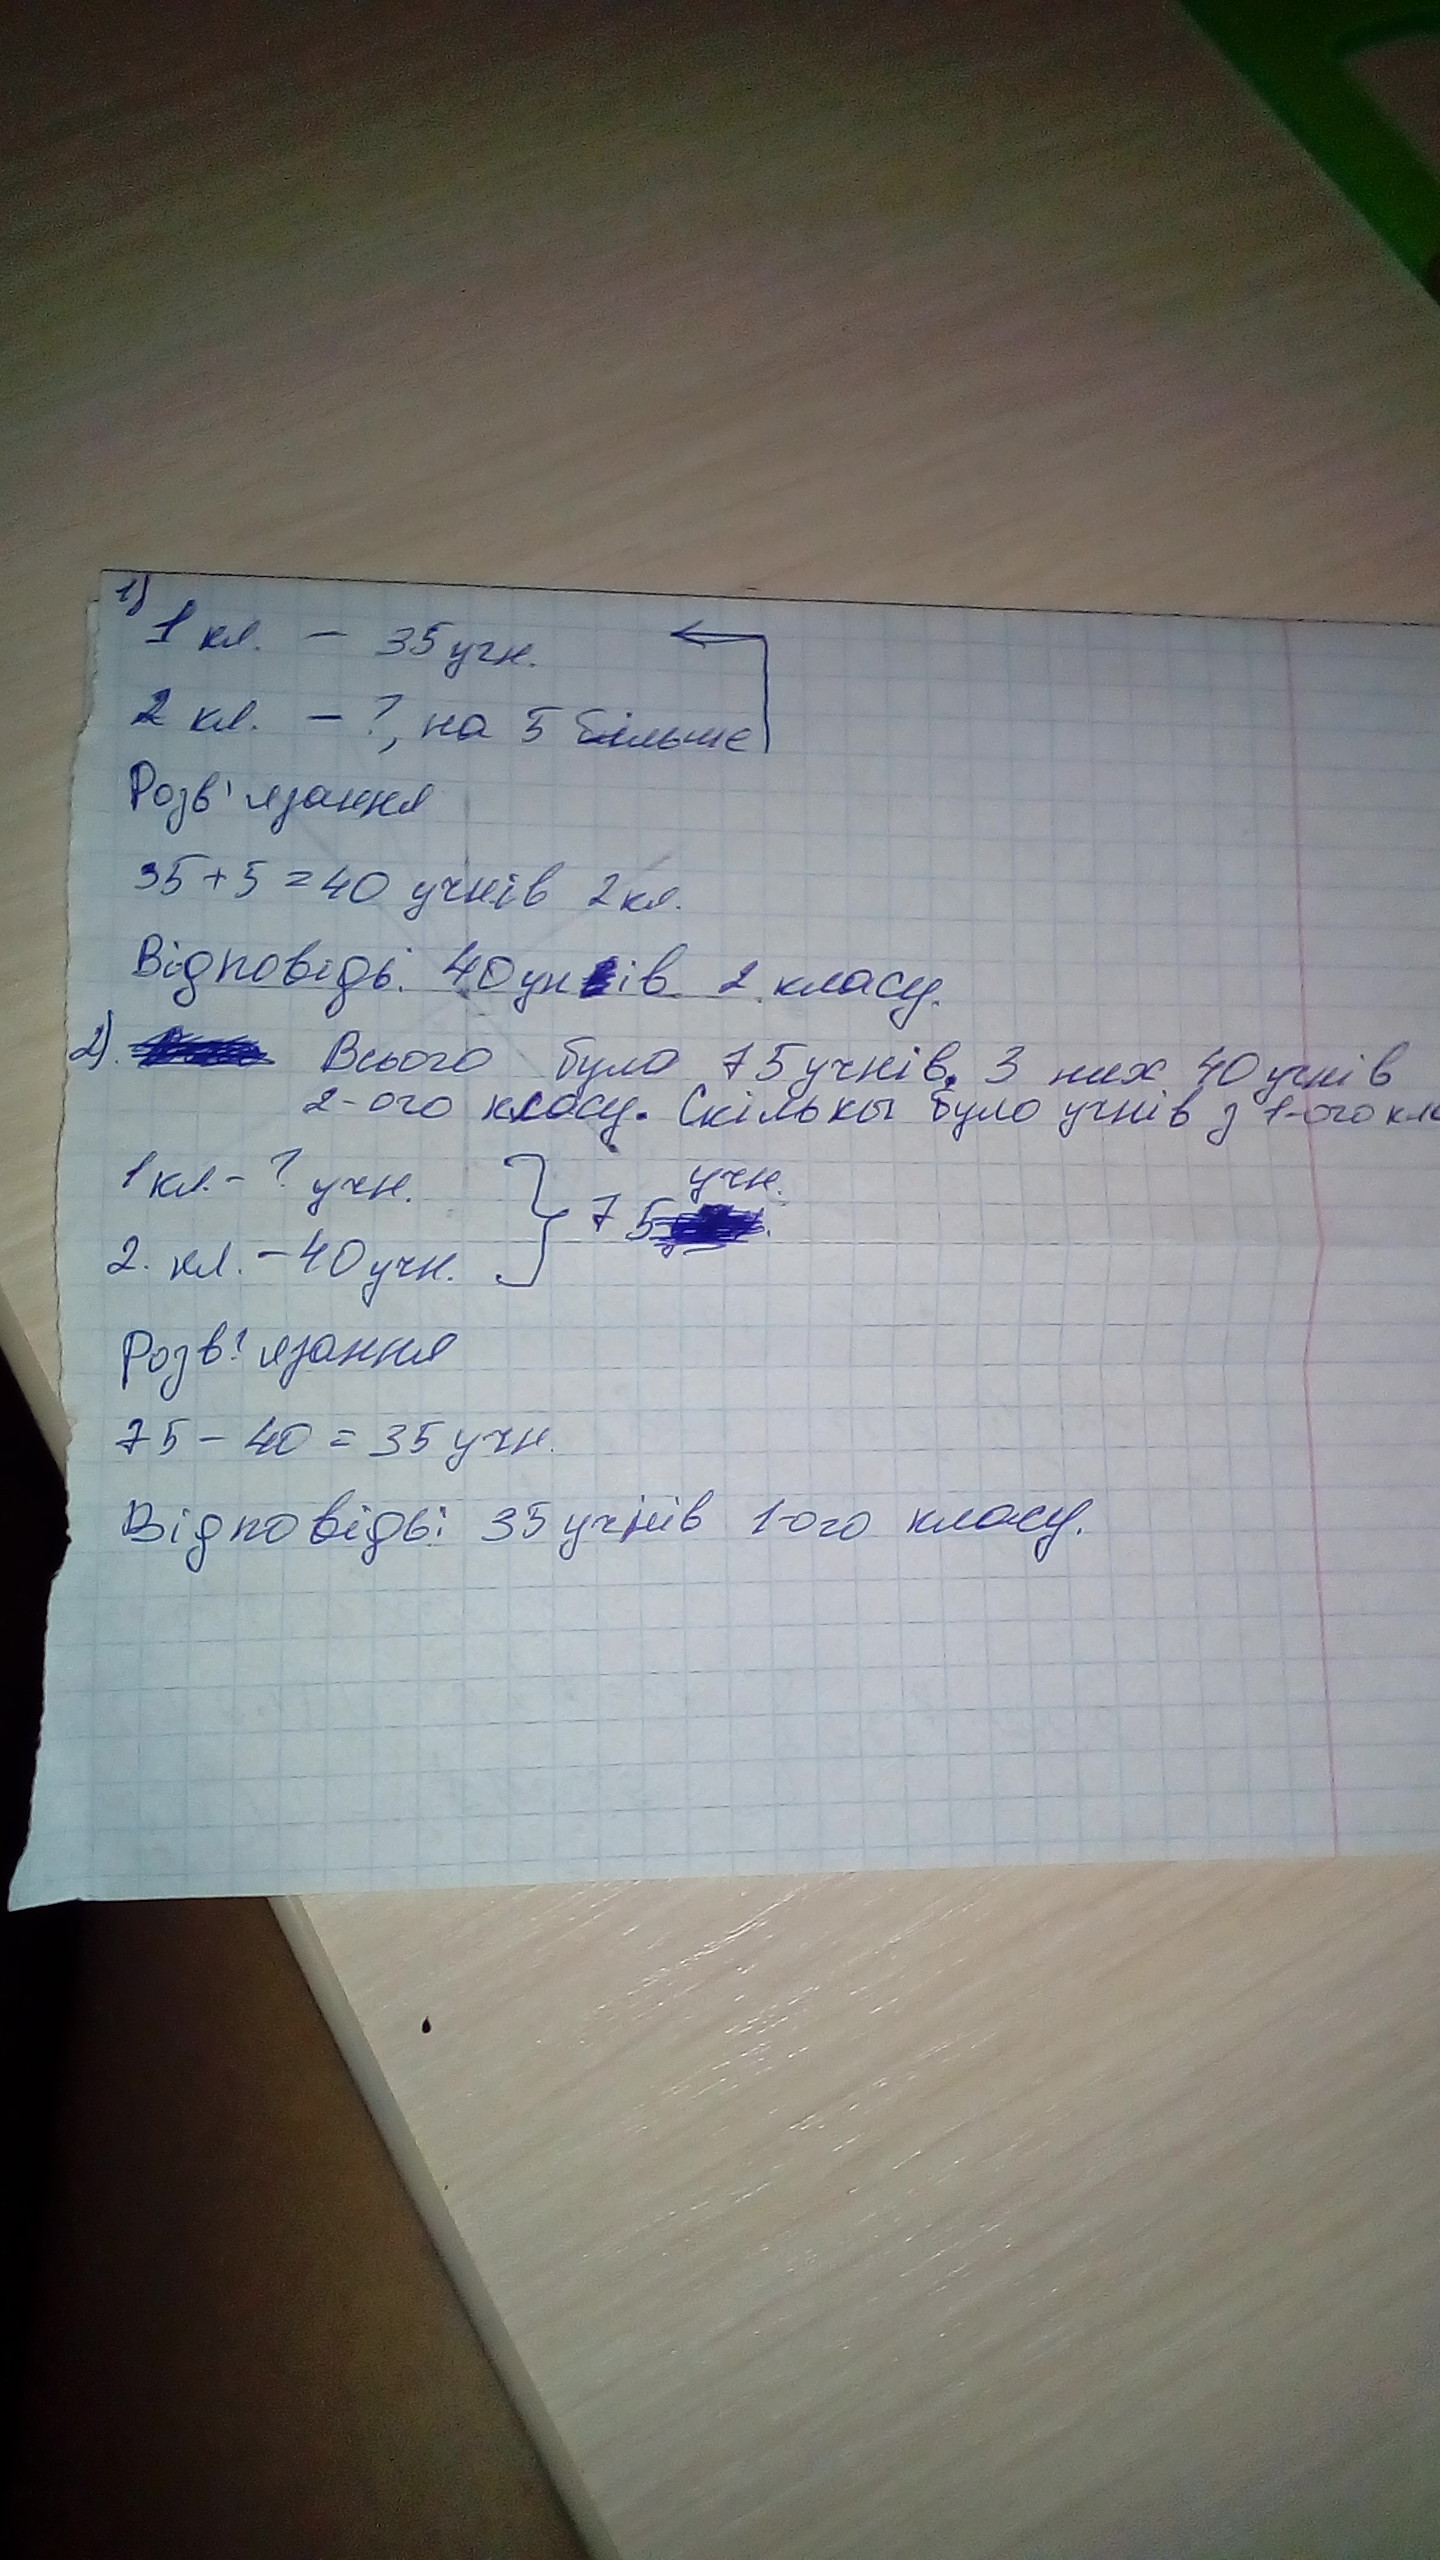 1)
1 кл. - 35 учн.
2 кл. - ?, на 5 більше
Розв'язання
35 + 5 = 40 учнів 2 кл.
Відповідь. 40 учнів 2 класу.
2). Всього було 75 учнів. З них 40 учнів
2-ого класу. Скільки було учнів з 1-ого кла
1 кл. - ? учн.
2. кл. - 40 учн.
75 учн.
Розв'язання
75 - 40 = 35 учн.
Відповідь: 35 учнів 1-ого класу.